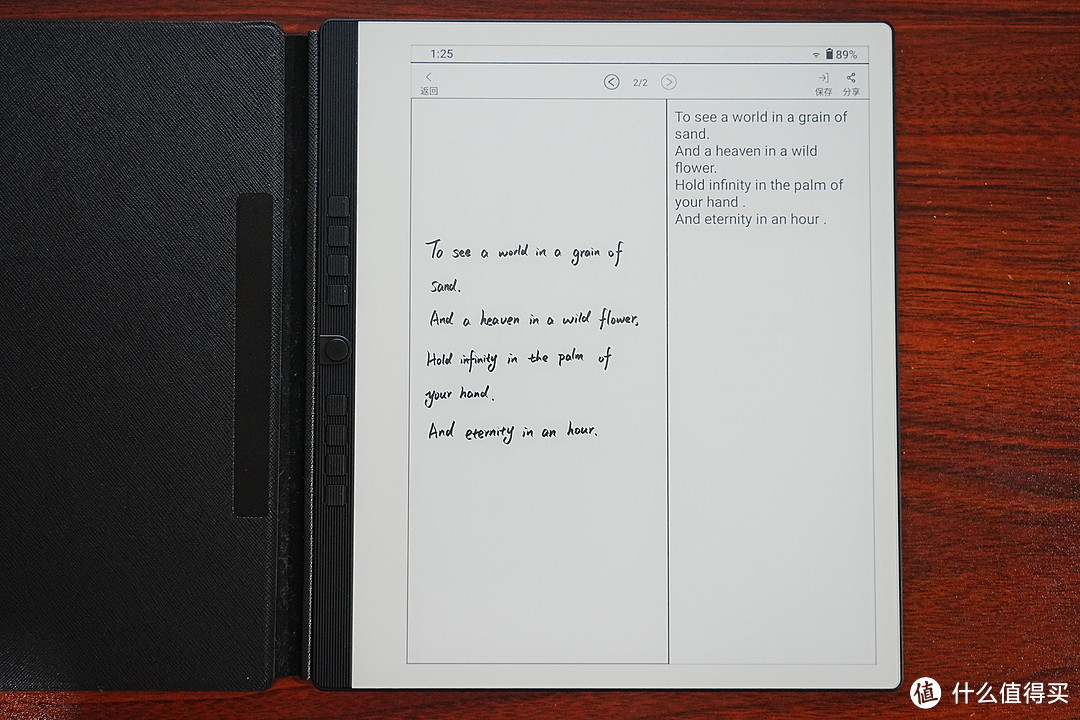 1:25
89%
返回
2/2
保存 分享
To see a world in a grain of
sand.
And a heaven in a wild flower,
Hold infinity in the palm of
your hand.
And eternity in an hour.
To see a world in a grain of
sand.
And a heaven in a wild
flower.
Hold infinity in the palm of
your hand .
And eternity in an hour .
值 什么值得买